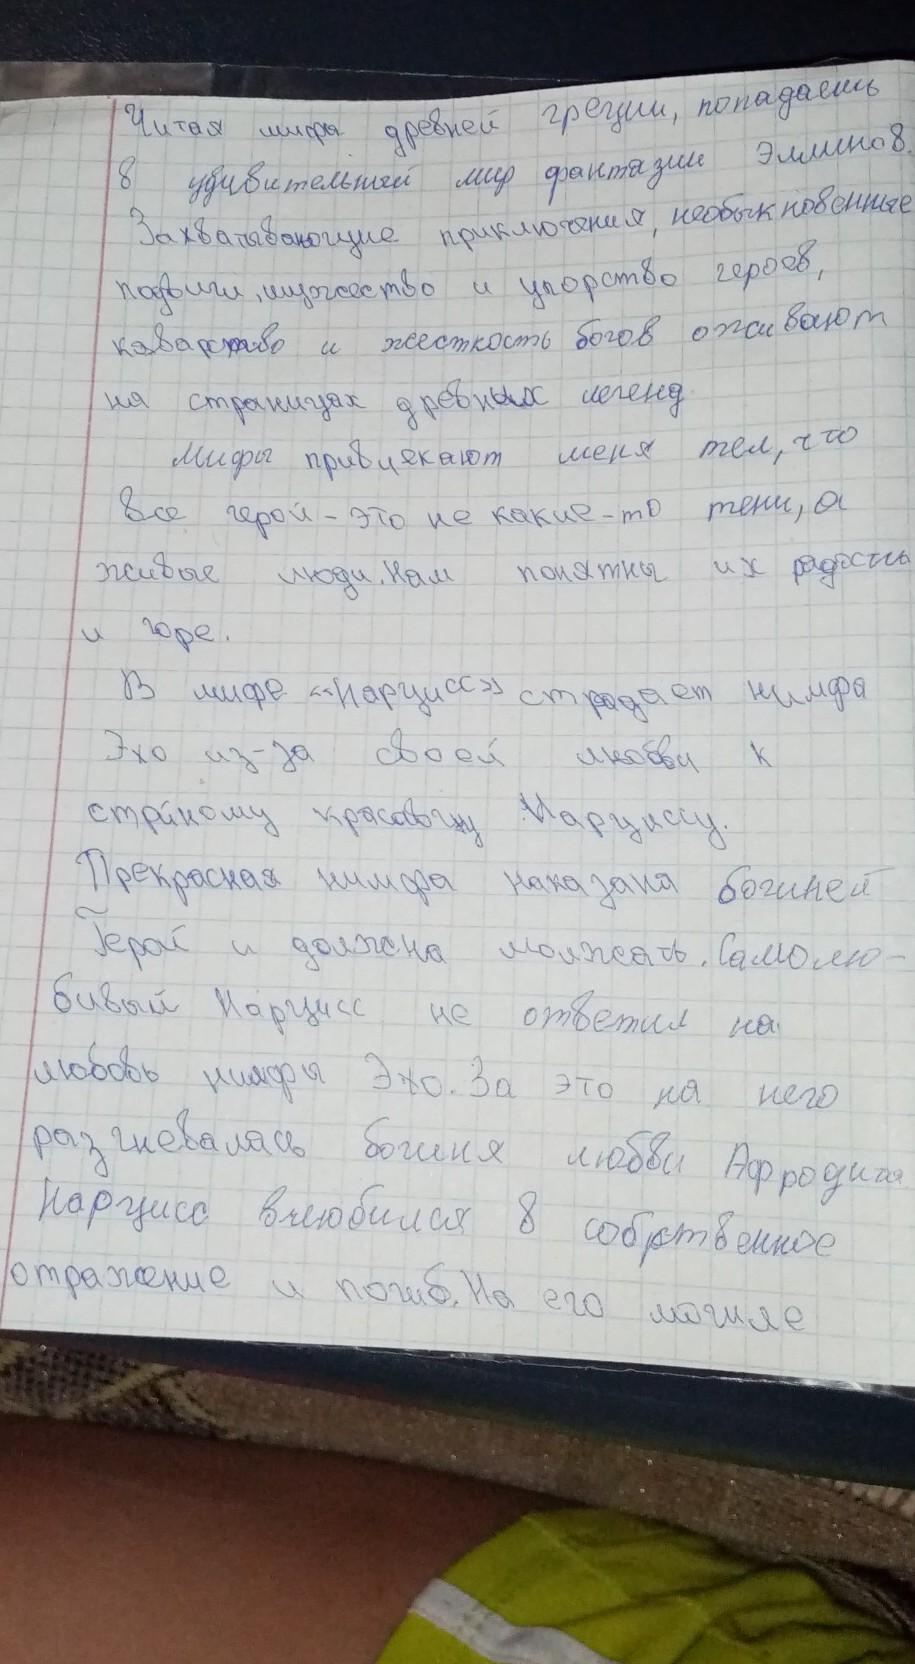 Читая мифы древней греции, попадаешь
в удивительный мир фантазии Эллинов.
Захватывающие приключения, необыкновенные
подвиги, мужество и упорство героев,
коварство и жесткость богов оживают
на страницах древных легенд
Мифы привлекают меня тем, что
все герой - это не какие-то тени, а
живые люди. Нам понятны их радость
и горе.
В мифе «Нарцисс» страдает нимфа
Эхо из-за своей любви к
стройному красавцу Нарциссу.
Прекрасная нимфа наказана богиней
Герой и должна молжать. Самолю-
бивый Нарцисс не ответил на
любовь нимфы Эхо. За это на него
разгневалась богиня любви Афродита
Нарцисс влюбился в собственное
отражение и погиб. На его могиле